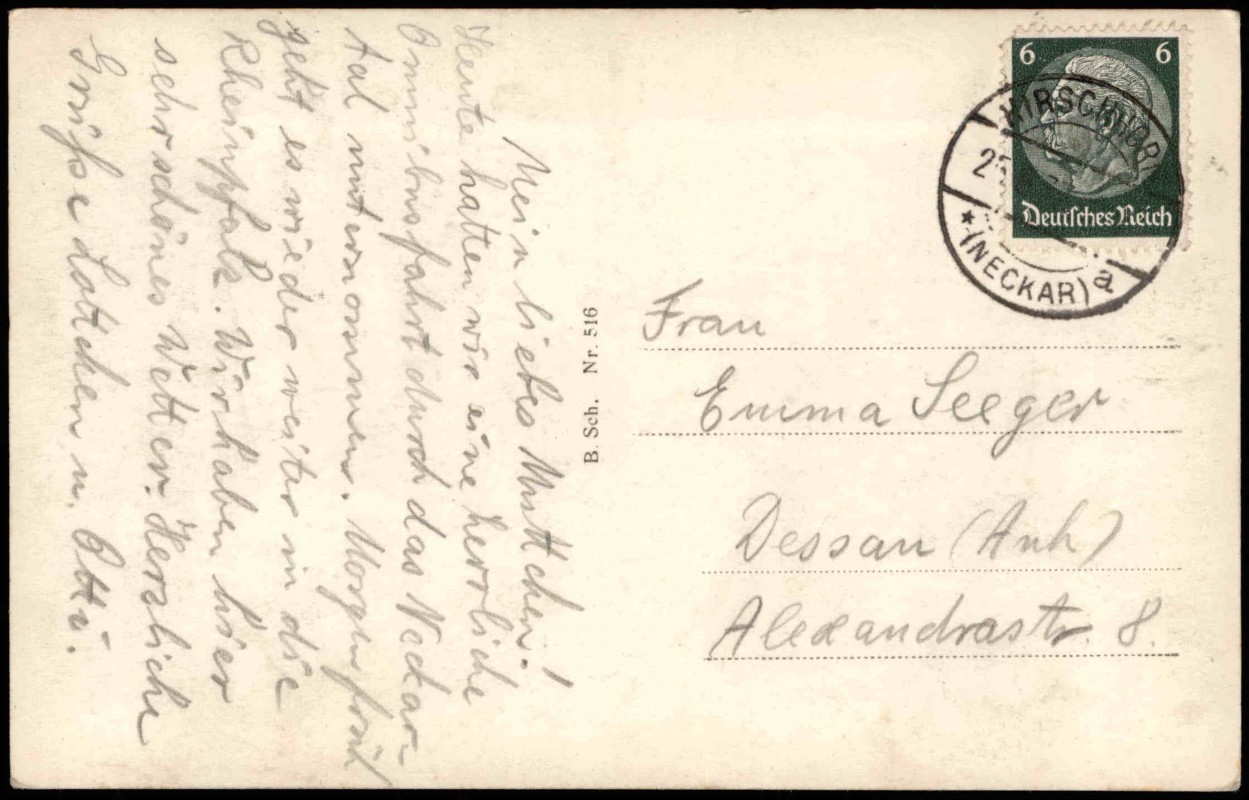 Mein liebes Muttchen!
Heute hatten wir eine herrliche
Omnibusfahrt durch das Neckar-
tal unternommen. Morgen früh
geht es wieder weiter in die
Rheinpfalz. Wir haben hier
sehr schönes Wetter. Herzliche
Grüße Lottchen u. Otti.
B. Sch. Nr. 516
6 6
Deutsches Reich
HIRSCHHOR
2
(NECKAR) a
Frau
Emma Seeger
Dessau (Anh)
Alexandrastr. 8.